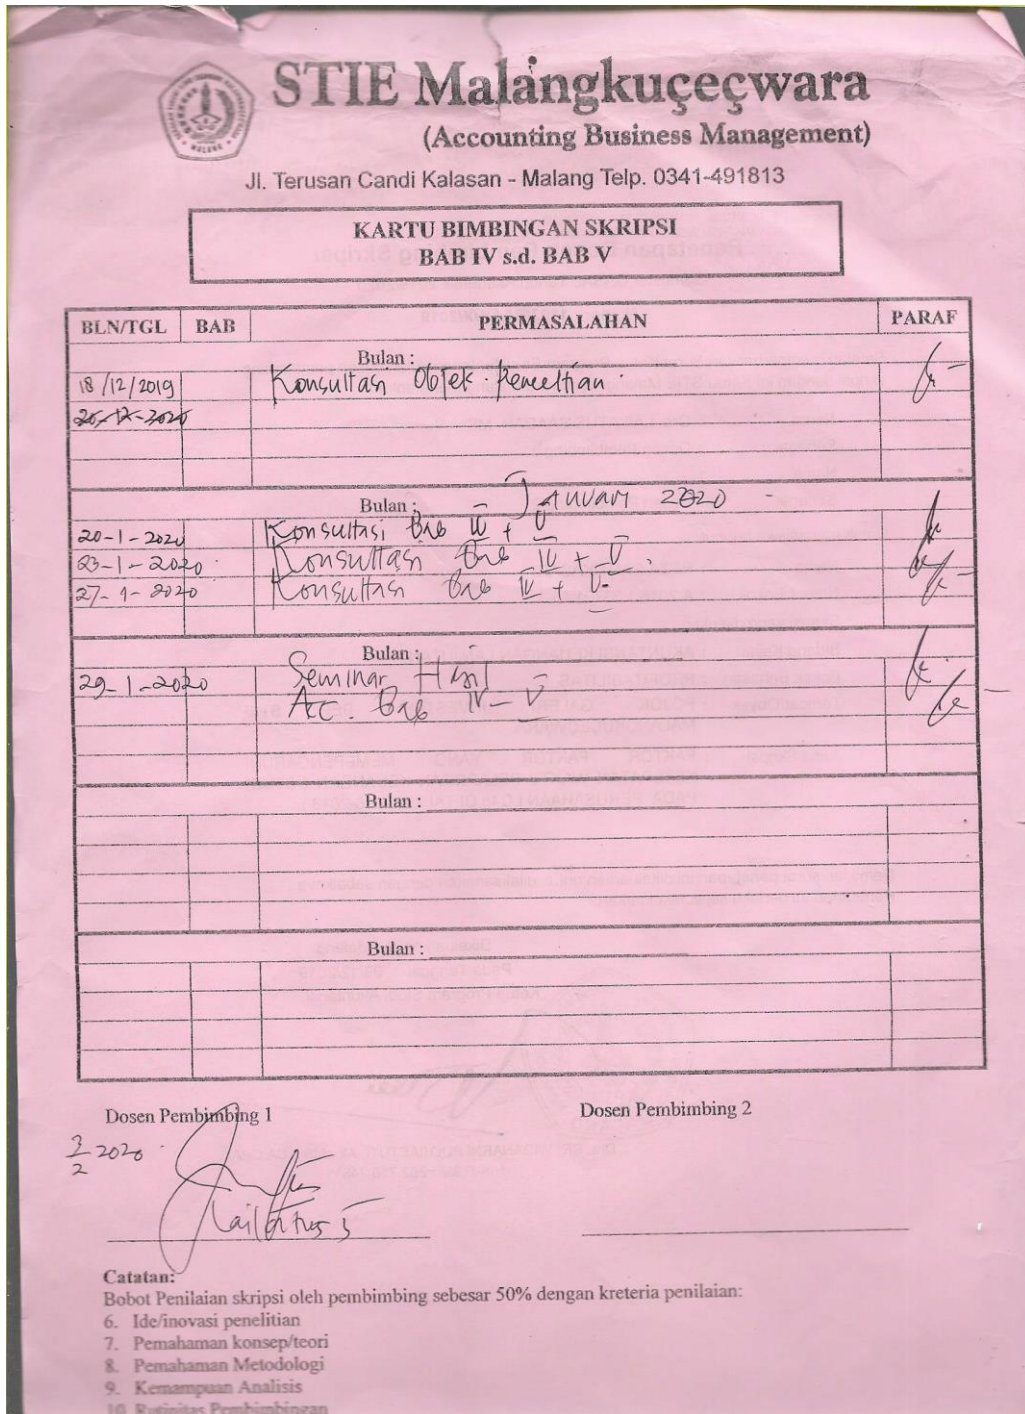 STIE Malangkuçeçwara
(Accounting Business Management)
Jl. Terusan Candi Kalasan - Malang Telp. 0341-491813
KARTU BIMBINGAN SKRIPSI
BAB IV s.d. BAB V
BLN/TGL BAB PERMASALAHAN PARAF
Bulan :
18/12/2019 Konsultasi Objek Penelitian.
Bulan : Januari 2020
20-1-2020 Konsultasi Bab IV + V
23-1-2020 Konsultasi Bab IV + V.
27-1-2020 Konsultasi Bab IV + V
Bulan :
29-1-2020 Seminar Hasil
Acc. Bab IV - V
Bulan :
Bulan :
Dosen Pembimbing 1 Dosen Pembimbing 2
3/2 2020
Catatan:
Bobot Penilaian skripsi oleh pembimbing sebesar 50% dengan kreteria penilaian:
6. Ide/inovasi penelitian
7. Pemahaman konsep/teori
8. Pemahaman Metodologi
9. Kemampuan Analisis
10. Rutinitas Pembimbingan